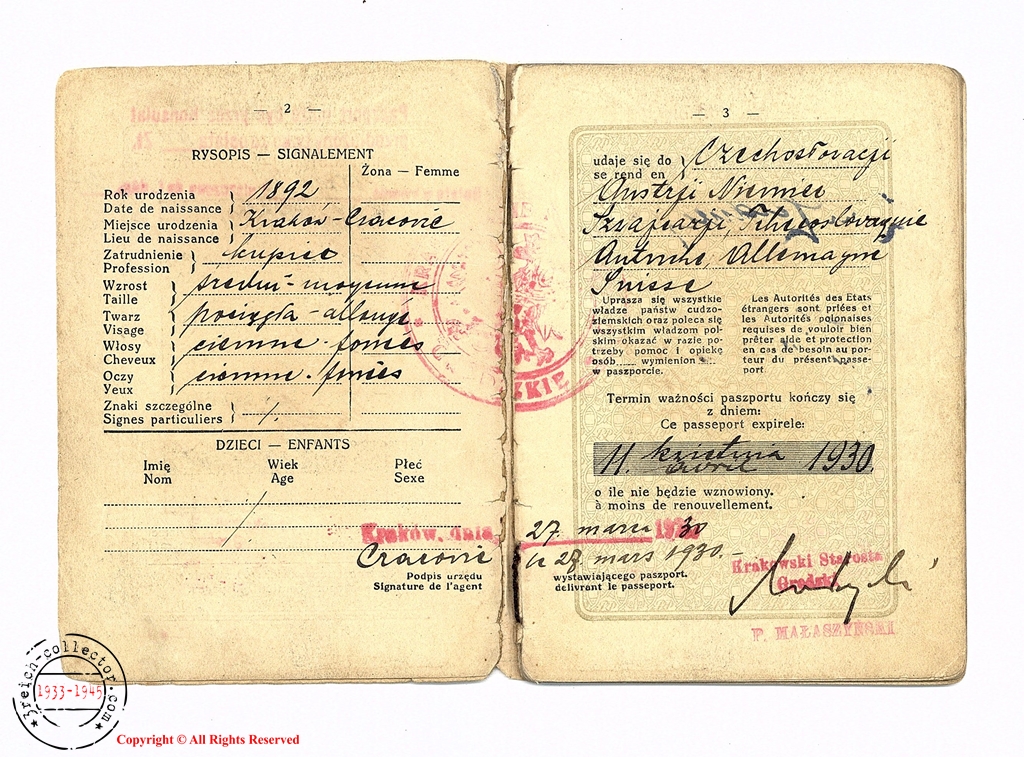 — 2 —
RYSOPIS — SIGNALEMENT
Żona — Femme
Rok urodzenia
Date de naissance
1892
Miejsce urodzenia
Lieu de naissance
Kraków - Cracovie
Zatrudnienie
Profession
kupiec
Wzrost
Taille
średni - moyenne
Twarz
Visage
pociągła - allongé
Włosy
Cheveux
ciemne - foncés
Oczy
Yeux
ciemne - foncés
Znaki szczególne
Signes particuliers
DZIECI — ENFANTS
Imię Wiek Płeć
Nom Age Sexe
Kraków, dnia
Cracovie
Podpis urzędu
Signature de l'agent
— 3 —
udaje się do
se rend en
Czechosłowacji
Austrji Niemiec
Szwajcarji, Tchécoslovaquie
Autriche, Allemagne
Suisse
Uprasza się wszystkie
władze państw cudzo-
ziemskich oraz poleca się
wszystkim władzom pol-
skim okazać w razie po-
trzeby pomoc i opiekę
osób wymienion
w paszporcie.
Les Autorités des Etats
étrangers sont priées et
les Autorités polonaises
requises de vouloir bien
prêter aide et protection
en cas de besoin au por-
teur du présent passe-
port
Termin ważności paszportu kończy się
z dniem:
Ce passeport expirele:
11. kwietnia 1930.
avril
o ile nie będzie wznowiony.
à moins de renouvellement.
27. marca 1930
le 27 mars 1930.-
wystawiającego paszport.
delivrant le passeport.
Krakowski Starosta
Grodzki
P. MAŁASZYŃSKI
3reich-collector.com
1933-1945
Copyright © All Rights Reserved